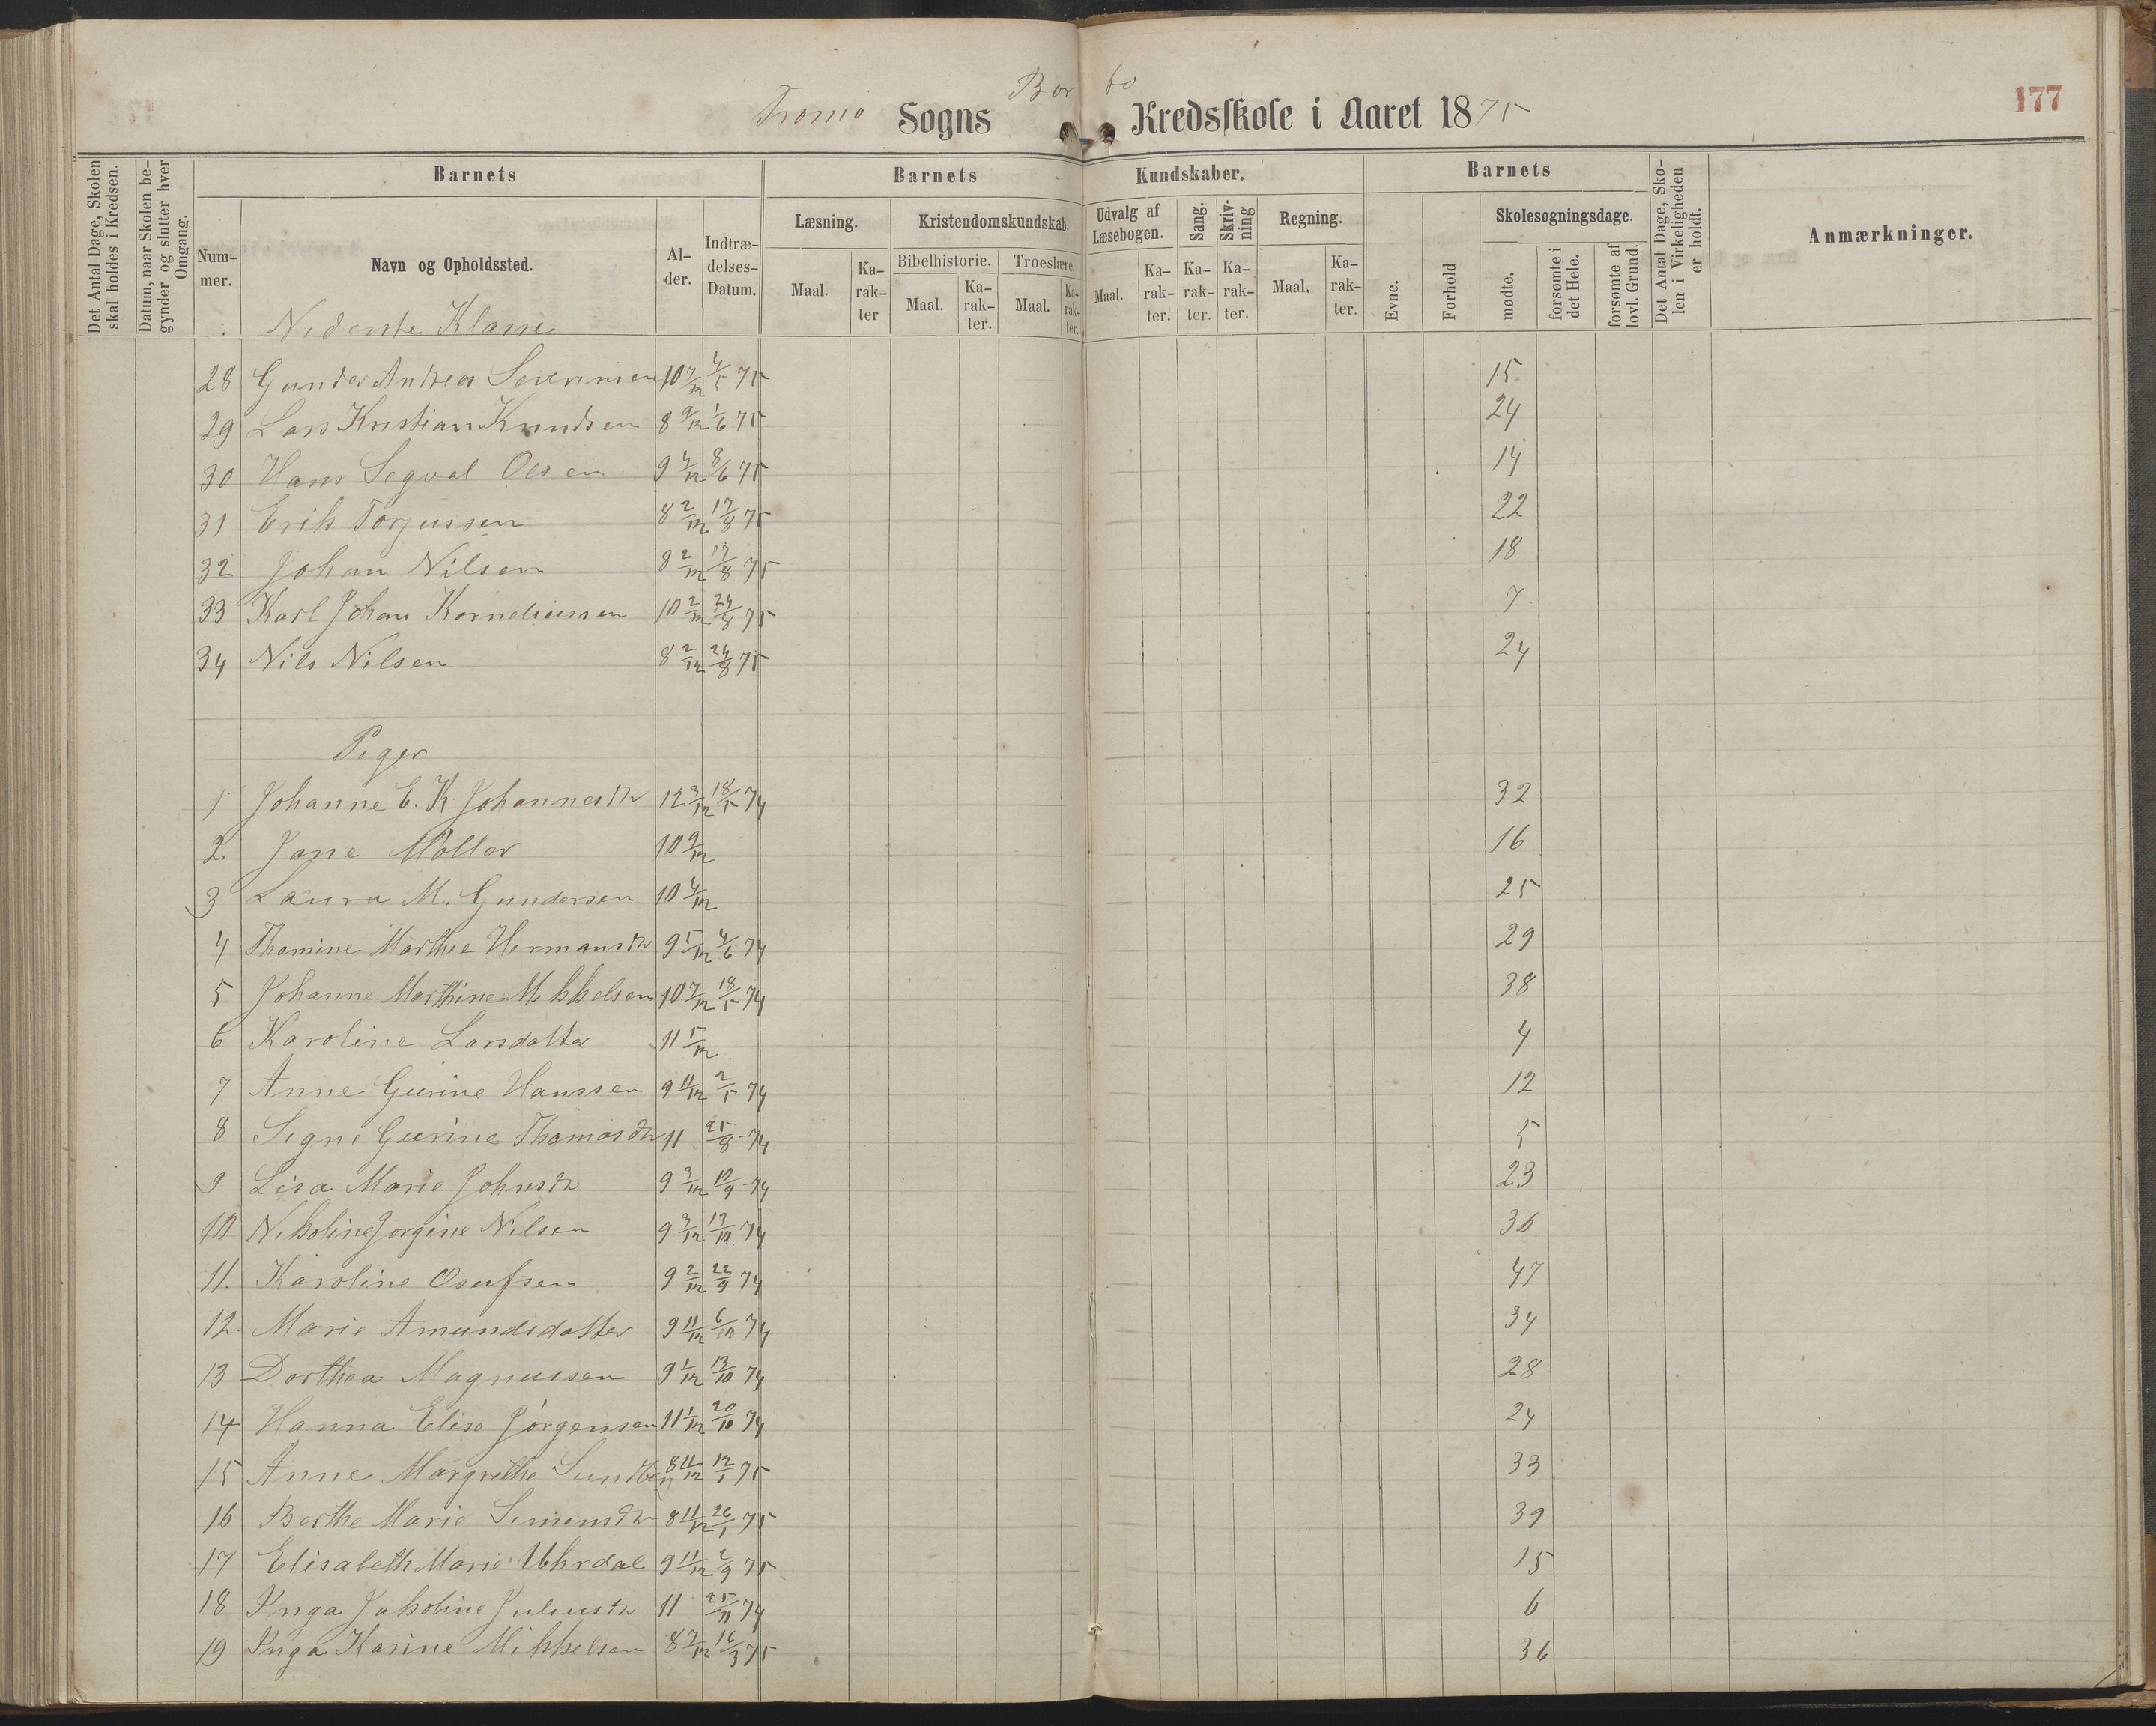 Tromø Sogns Bor fo Kredsskole i Aaret 1875
177
Det Antal Dage, Skolen skal holdes i Kredsen.
Datum, naar Skolen begynder og slutter hver Omgang.
Barnets
Nummer.
Navn og Opholdssted.
Alder.
Indtrædelses-Datum.
Barnets Kundskaber.
Læsning.
Maal.
Karakter
Kristendomskundskab.
Bibelhistorie.
Maal.
Karakter.
Troeslære.
Maal.
Karakter.
Udvalg af Læsebogen.
Maal.
Karakter.
Sang.
Karakter.
Skrivning
Karakter.
Regning.
Maal.
Karakter.
Barnets
Evne.
Forhold
Skolesøgningsdage.
mødte.
forsømte i det Hele.
forsømte af lovl. Grund.
Det Antal Dage, Skolen i Virkeligheden er holdt.
Anmærkninger.
Nederste Klasse
28 Gunder Andreas Sørensen 10 7/12 4/5 75 15
29 Lars Kristian Knudsen 8 9/12 1/6 75 24
30 Hans Segval Olsen 9 4/12 8/6 75 14
31 Erik Torjussen 8 2/12 17/8 75 22
32 Johan Nilsen 8 2/12 17/8 75 18
33 Karl Johan Korneliussen 10 2/12 24/8 75 7
34 Nils Nilsen 8 2/12 24/8 75 24
Piger
1 Johanne E. K Johannesdr 12 3/12 18/5 74 32
2. Jane Møller 10 9/12 16
3 Laura M. Gundersen 10 4/12 25
4 Thomine Marthie Hermansdr 9 5/12 4/6 74 29
5 Johanne Marthine Mikkelsen 10 7/12 18/5 74 38
6 Karoline Larsdatter 11 5/12 4
7 Anne Gurine Hanssen 9 11/12 2/5 74 12
8 Signe Gurine Thomasdr 11 25/8 - 74 5
9 Lisa Marie Johnsdr 9 3/12 10/9 - 74 23
10 Nikoline Jorgine Nilsen 9 3/12 13/10 74 36
11. Karoline Osufsen 9 2/12 22/9 74 47
12. Marie Amundsdatter 9 11/12 6/10 74 34
13 Dorthea Magnussen 9 1/12 13/10 74 28
14 Hanna Elise Jørgensen 11 1/12 20/10 74 24
15 Anne Margrethe 8 11/12 12/1 75 33
16 Berthe Marie Simonsdr 8 11/12 26/1 75 39
17 Elisabeth Marie Uhrdal 9 11/12 2/9 75 15
18 Inga Jakoline Juliusdr 11 25/11 74 6
19 Inga Karine Mikkelsen 8 7/12 16/3 75 36